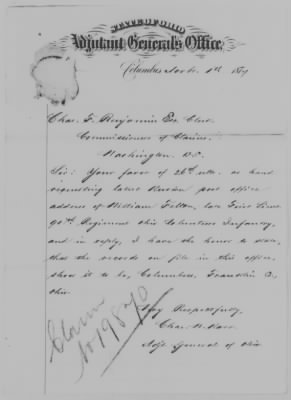 STATE OF OHIO
Adjutant General's Office,
Columbus Nov. 1st 187
Chas. F. Benjamin Esq. Clerk
Commissioners of Claims.
Washington D.C.
Sir: Your favor of 26th ulto. at hand
requesting latest known post office
address of William Felton, late First Lieut.
90th Regiment Ohio Volunteer Infantry,
and in reply, I have the honor to state,
that the records on file in this office,
show it to be, Columbus, Franklin Co,
Ohio.
Very Respectfully,
Chas. W. Karr
Adjt. General of Ohio
Claim
No 19870